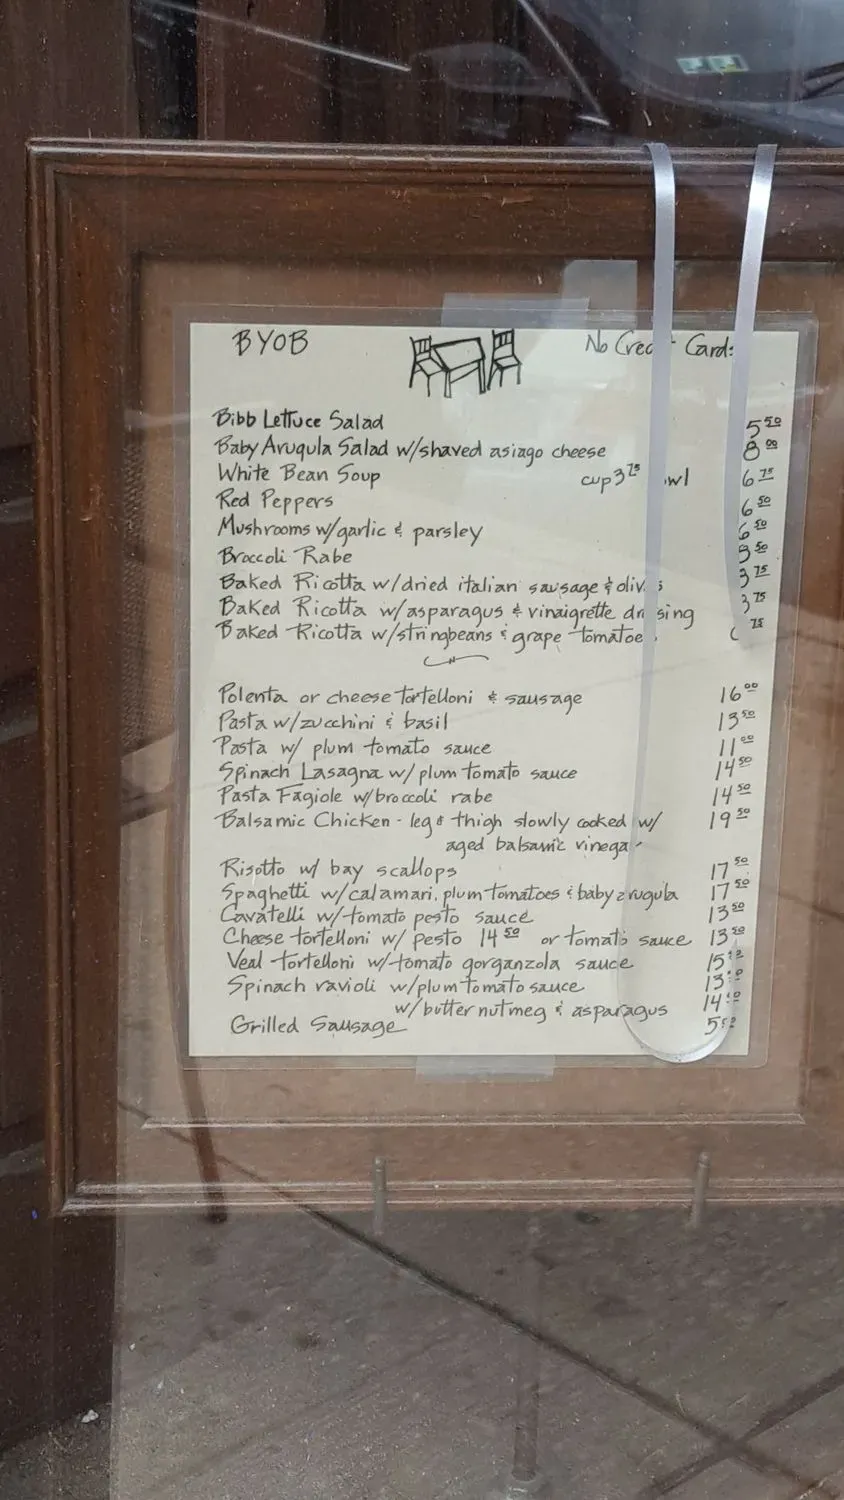 BYOB No Credit Cards
Bibb Lettuce Salad 5 50
Baby Arugula Salad w/shaved asiago cheese 8 00
White Bean Soup cup 3 75 6 75
Red Peppers 6 50
Mushrooms w/garlic & parsley 6 50
Broccoli Rabe 5 50
Baked Ricotta w/dried italian sausage & olives 75
Baked Ricotta w/asparagus & vinaigrette dressing 75
Baked Ricotta w/stringbeans & grape tomatoes 75
Polenta or cheese tortelloni & sausage 16 00
Pasta w/zucchini & basil 13 50
Pasta w/ plum tomato sauce 11 00
Spinach Lasagna w/plum tomato sauce 14 50
Pasta Fagiole w/broccoli rabe 14 50
Balsamic Chicken - leg & thigh slowly cooked w/ 19 50
aged balsamic vinegar
Risotto w/ bay scallops 17 50
Spaghetti w/calamari, plum tomatoes & baby arugula 17 50
Cavatelli w/tomato pesto sauce 13 50
Cheese tortelloni w/ pesto 14 50 or tomato sauce 13 50
Veal tortelloni w/tomato gorganzola sauce 15 50
Spinach ravioli w/plum tomato sauce 13 50
w/butter nutmeg & asparagus 14 50
Grilled Sausage 5 50